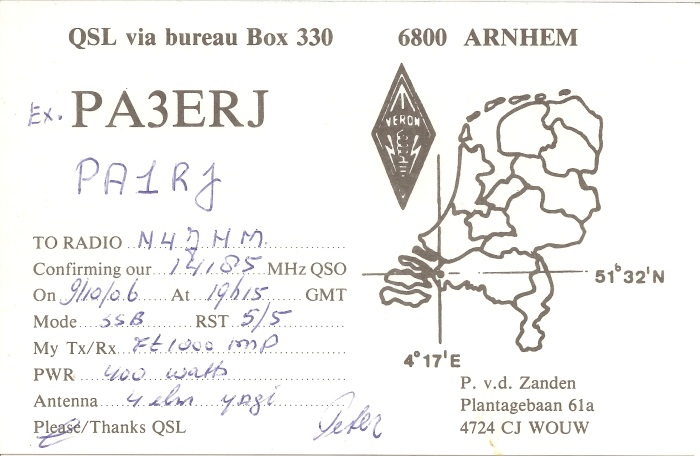 QSL via bureau Box 330 6800 ARNHEM
Ex. PA3ERJ
PA1RJ
VERON
TO RADIO N4ZHM
Confirming our 14185 MHz QSO
On 9/10/06 At 19h15 GMT
Mode SSB RST 5/5
My Tx/Rx Ft 1000 mp
PWR 400 watts
Antenna 4 elm yagi
Please/Thanks QSL
Peter
51°32'N
4°17'E
P. v.d. Zanden
Plantagebaan 61a
4724 CJ WOUW